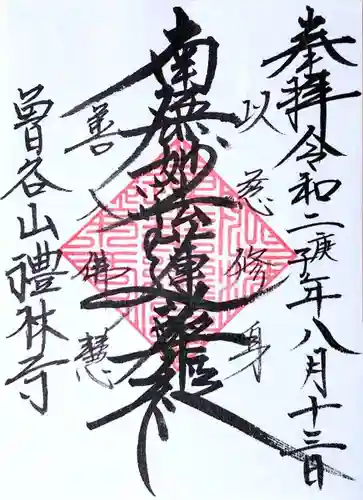 奉拝 令和二庚子年八月十三日
以慈修身
南無妙法蓮華経
善入佛慧
曽谷山禮林寺